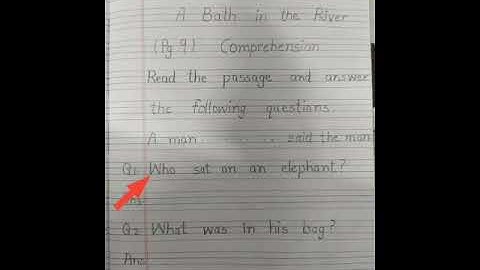 A Bath in the River
(Pg 9) Comprehension
Read the passage and answer
the following questions.
A man ........ said the man
Q1 Who sat on an elephant?
Ans
Q2 What was in his bag?
Ans